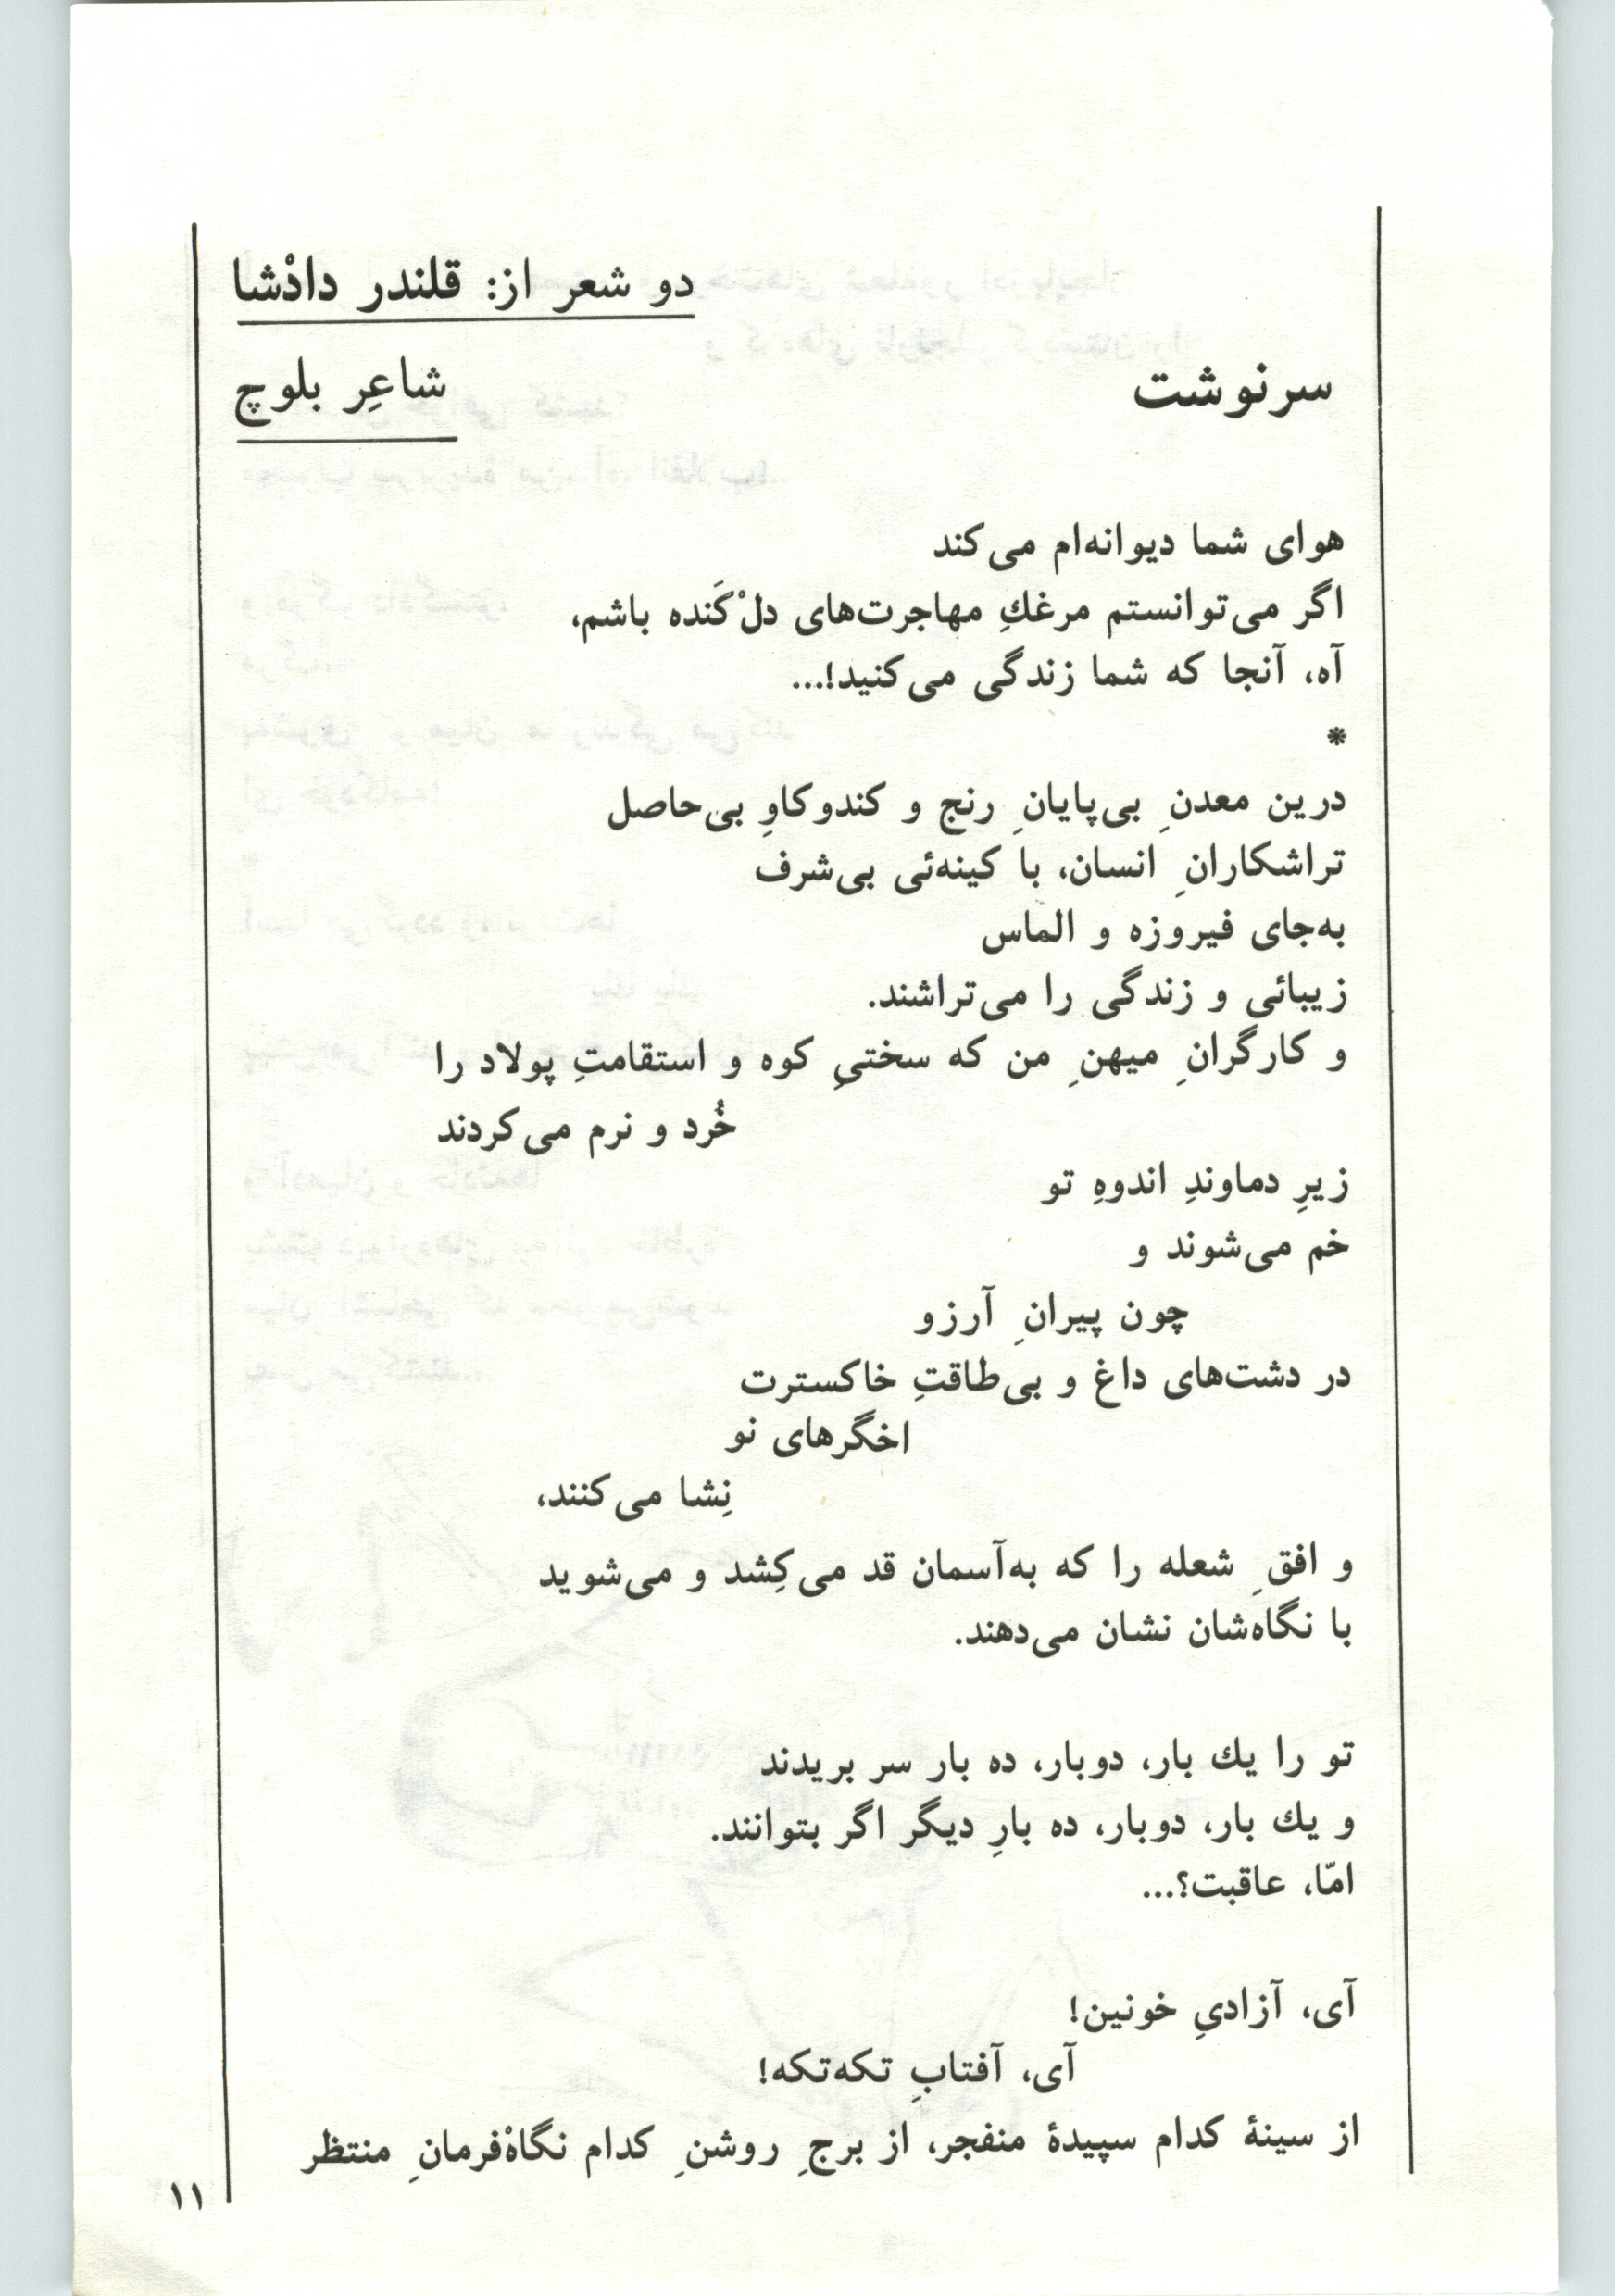 دو شعر از: قلندر دادْشا
شاعِر بلوچ
سرنوشت
هوای شما دیوانه‌ام می‌کند
اگر می‌توانستم مرغكِ مهاجرت‌های دلْ‌کَنده باشم،
آه، آنجا که شما زندگی می‌کنید!...
*
درین معدنِ بی‌پایانِ رنج و کندوکاوِ بی‌حاصل
تراشکارانِ انسان، با کینه‌ئی بی‌شرف
به‌جای فیروزه و الماس
زیبائی و زندگی را می‌تراشند.
و کارگرانِ میهنِ من که سختیِ کوه و استقامتِ پولاد را
خُرد و نرم می‌کردند
زیرِ دماوندِ اندوهِ تو
خم می‌شوند و
چون پیرانِ آرزو
در دشت‌های داغ و بی‌طاقتِ خاکسترت
اخگرهای نو
نِشا می‌کنند،
و افقِ شعله را که به‌آسمان قد می‌کِشد و می‌شوید
با نگاه‌شان نشان می‌دهند.
تو را یك بار، دوبار، ده بار سر بریدند
و یك بار، دوبار، ده بارِ دیگر اگر بتوانند.
امّا، عاقبت؟...
آی، آزادیِ خونین!
آی، آفتابِ تکه‌تکه!
از سینهٔ کدام سپیدهٔ منفجر، از برجِ روشنِ کدام نگاهْ‌فرمانِ منتظر
۱۱